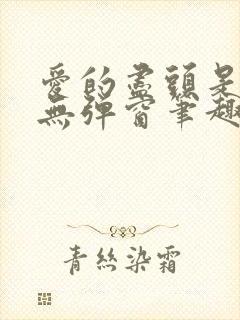 愛的盡頭是
無彈窗筆趣
青絲染霜